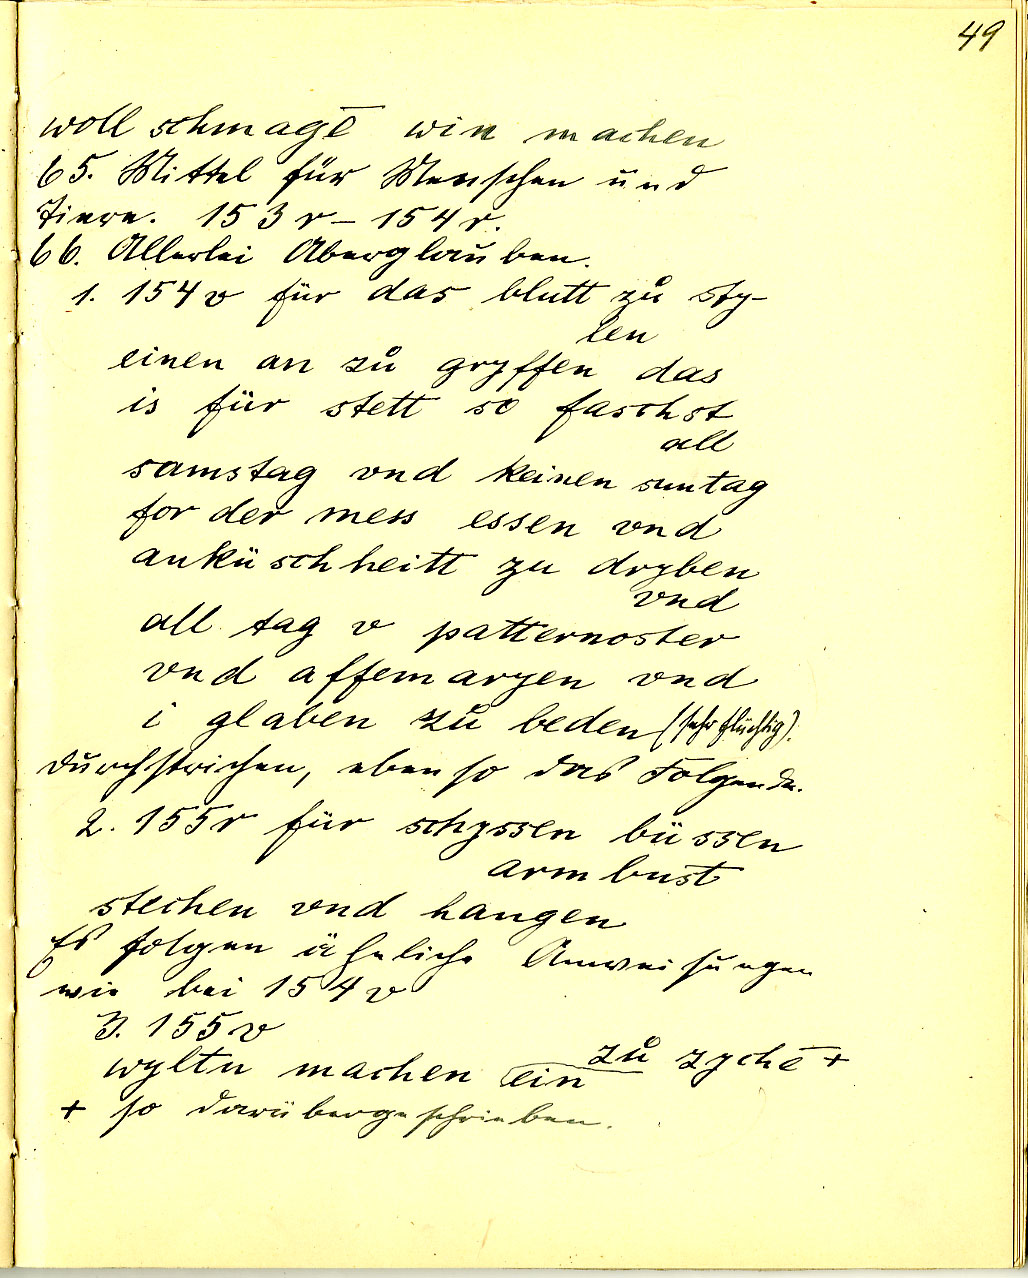 49
woll schmagē win machen
65. Mittel für Menschen und
Tiere. 153r – 154r.
66. Allerlei Aberglauben.
1. 154v für das blutt zů sty-
len
einen an zů gryffen das
is für stett so faschst
all
samstag vnd keinen suntag
for der mess essen vnd
anküschheitt zu dryben
vnd
all tag v patternoster
vnd affemaryen vnd
i glaben zů beden (sehr flüchtig).
durchstrichen, ebenso das Folgende.
2. 155r für schyssen büssen
armbust
stechen vnd hangen
Es folgen ähnliche Anweisungen
wie bei 154v
3. 155v
wyltu machen ein zů zychē +
+ so darübergeschrieben.